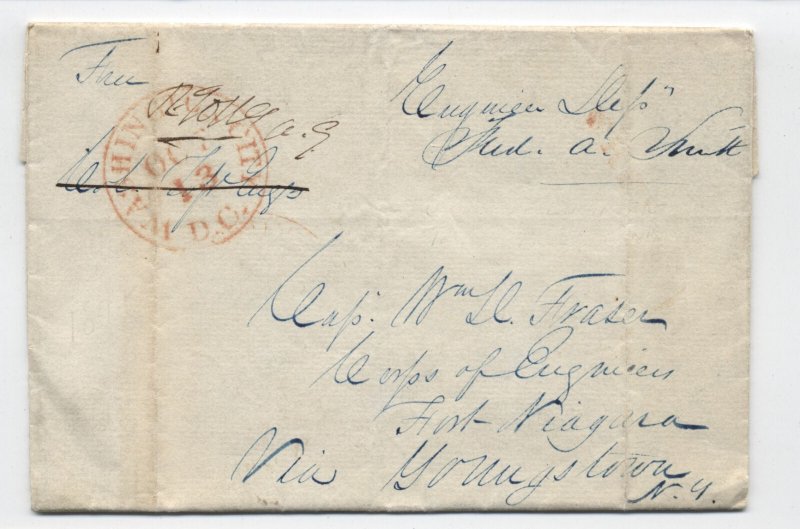 Free
Engineer Dep
Fred. A. Smith
WASHINGTON CITY
OCT
13
D.C.
Cap. Wm D. Fraser
Corps of Engineers
Fort Niagara
Via Youngstown
N.Y.